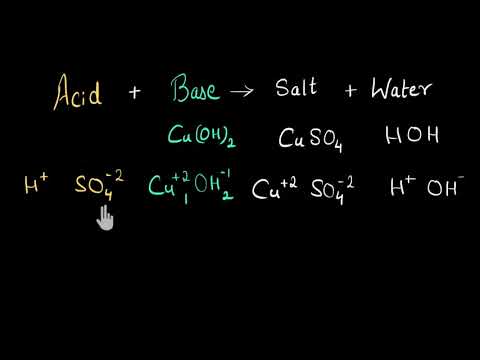 Acid + Base → Salt + Water
Cu(OH)₂ CuSO₄ HOH
H⁺ SO₄⁻² Cu₁⁺² OH₂⁻¹ Cu⁺² SO₄⁻² H⁺ OH⁻